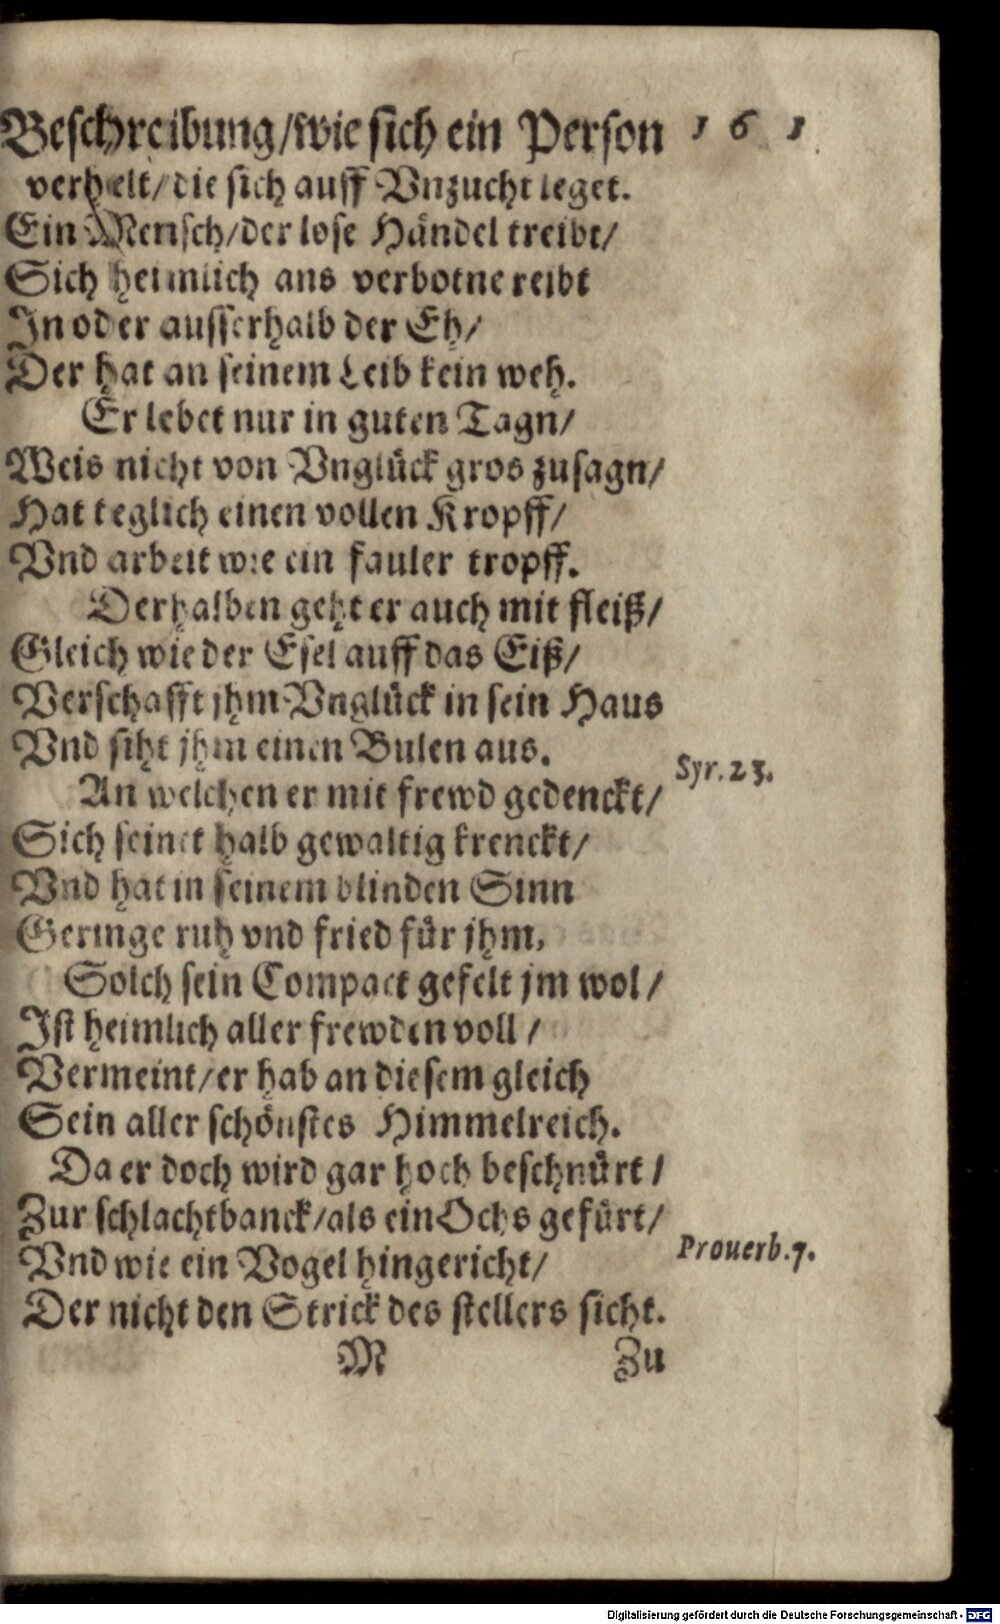 Beschreibung/wie sich ein Person 161
verhelt/die sich auff Vnzucht leget.
Ein Mensch/der lose Händel treibt/
Sich heimlich ans verbotne reibt
In oder ausserhalb der Eh/
Der hat an seinem Leib kein weh.
Er lebet nur in guten Tagn/
Weis nicht von Vnglück gros zusagn/
Hat teglich einen vollen Kropff/
Vnd arbeit wie ein fauler tropff.
Derhalben geht er auch mit fleiß/
Gleich wie der Esel auff das Eiß/
Verschafft jhm Vnglück in sein Haus
Vnd siht jhm einen Bulen aus.
Syr. 23.
An welchen er mit frewd gedenckt/
Sich seinet halb gewaltig krenckt/
Vnd hat in seinem blinden Sinn
Geringe ruh vnd fried für jhm,
Solch sein Compact gefelt jm wol/
Ist heimlich aller frewden voll/
Vermeint/er hab an diesem gleich
Sein aller schönstes Himmelreich.
Da er doch wird gar hoch beschnürt/
Zur schlachtbanck/als ein Ochs gefürt/
Vnd wie ein Vogel hingericht/
Prouerb. 7.
Der nicht den Strick des stellers sicht.
M Zu
Digitalisierung gefördert durch die Deutsche Forschungsgemeinschaft - DFG